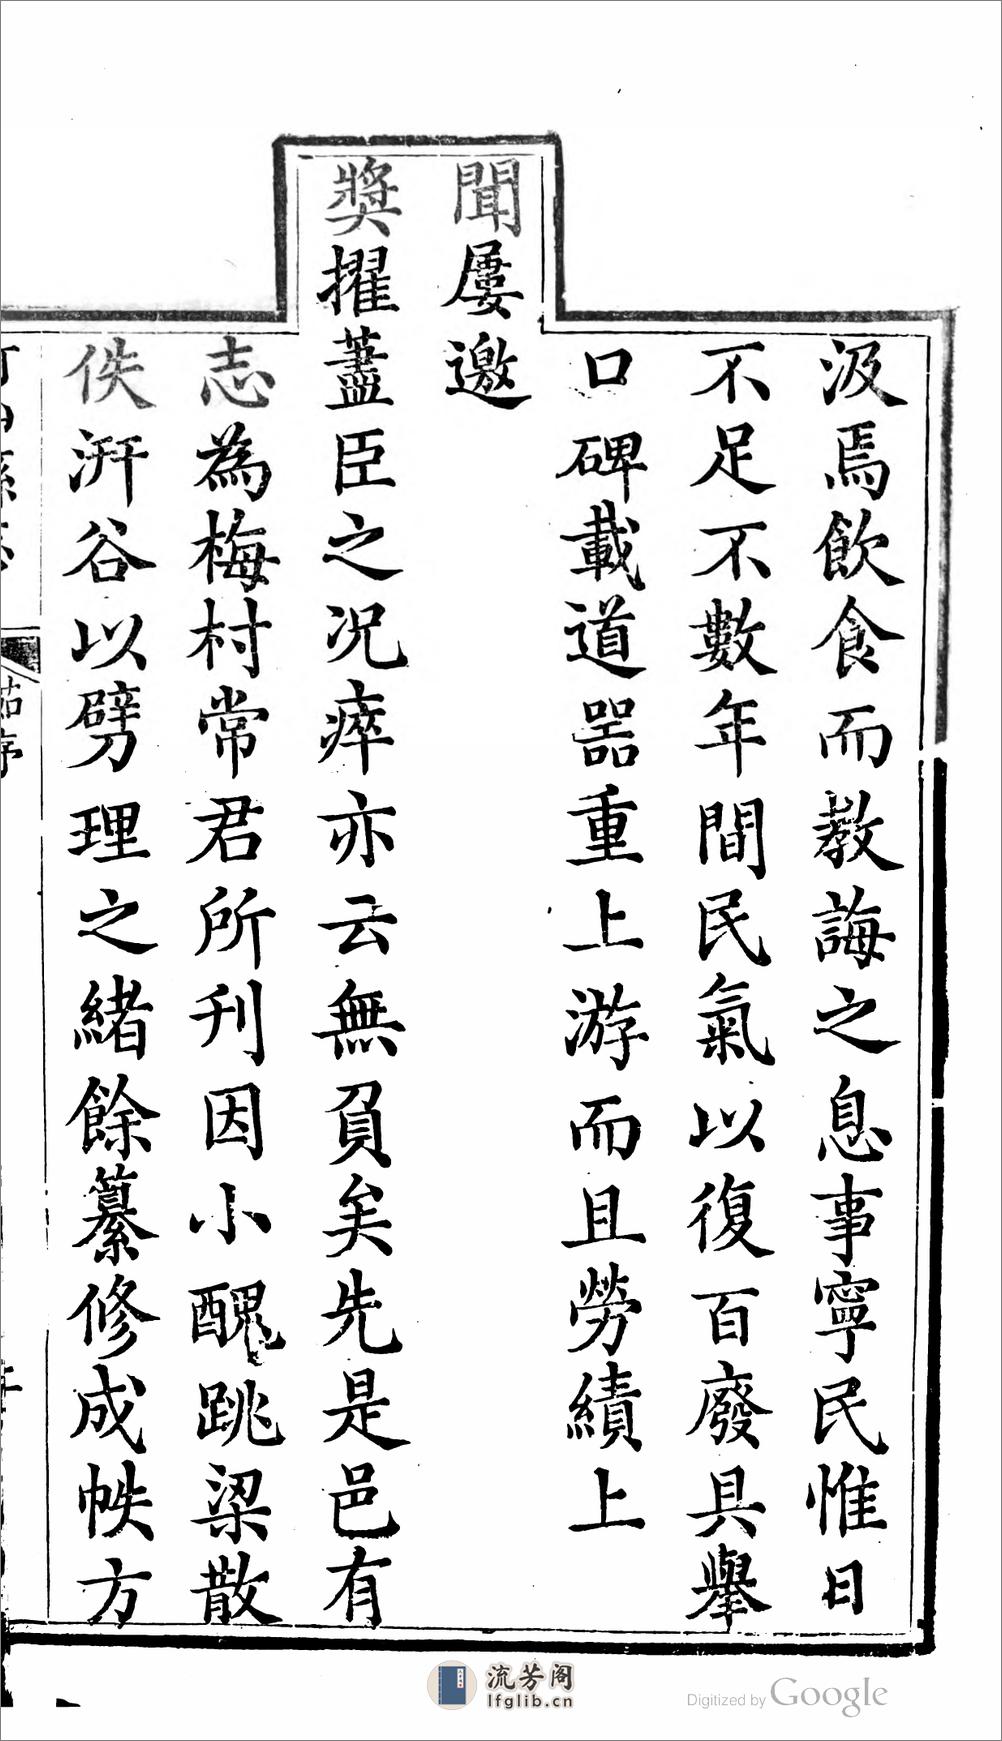 汲焉飲食而教誨之息事寧民惟日
不足不數年間民氣以復百廢具舉
口碑載道噐重上游而且勞績上
聞屢邀
獎擢藎臣之况瘁亦云無負矣先是邑有
志為梅村常君所刊因小醜跳梁散
佚汧谷以劈理之緒餘纂修成帙方
流芳阁
lfglib.cn
Digitized by Google